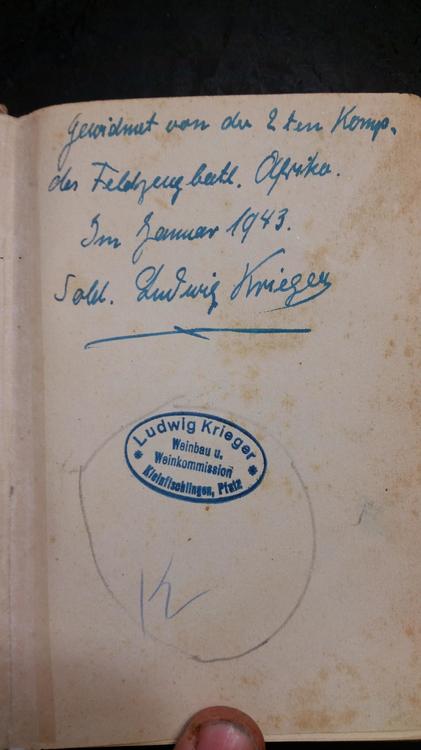 Gewidmet von der 2ten Komp.
des Feldzeugbatl. Afrika.
Im Januar 1943.
Sold. Ludwig Krieger
* Ludwig Krieger *
Weinbau u.
Weinkommission
Kleinfischlingen, Pfalz
K